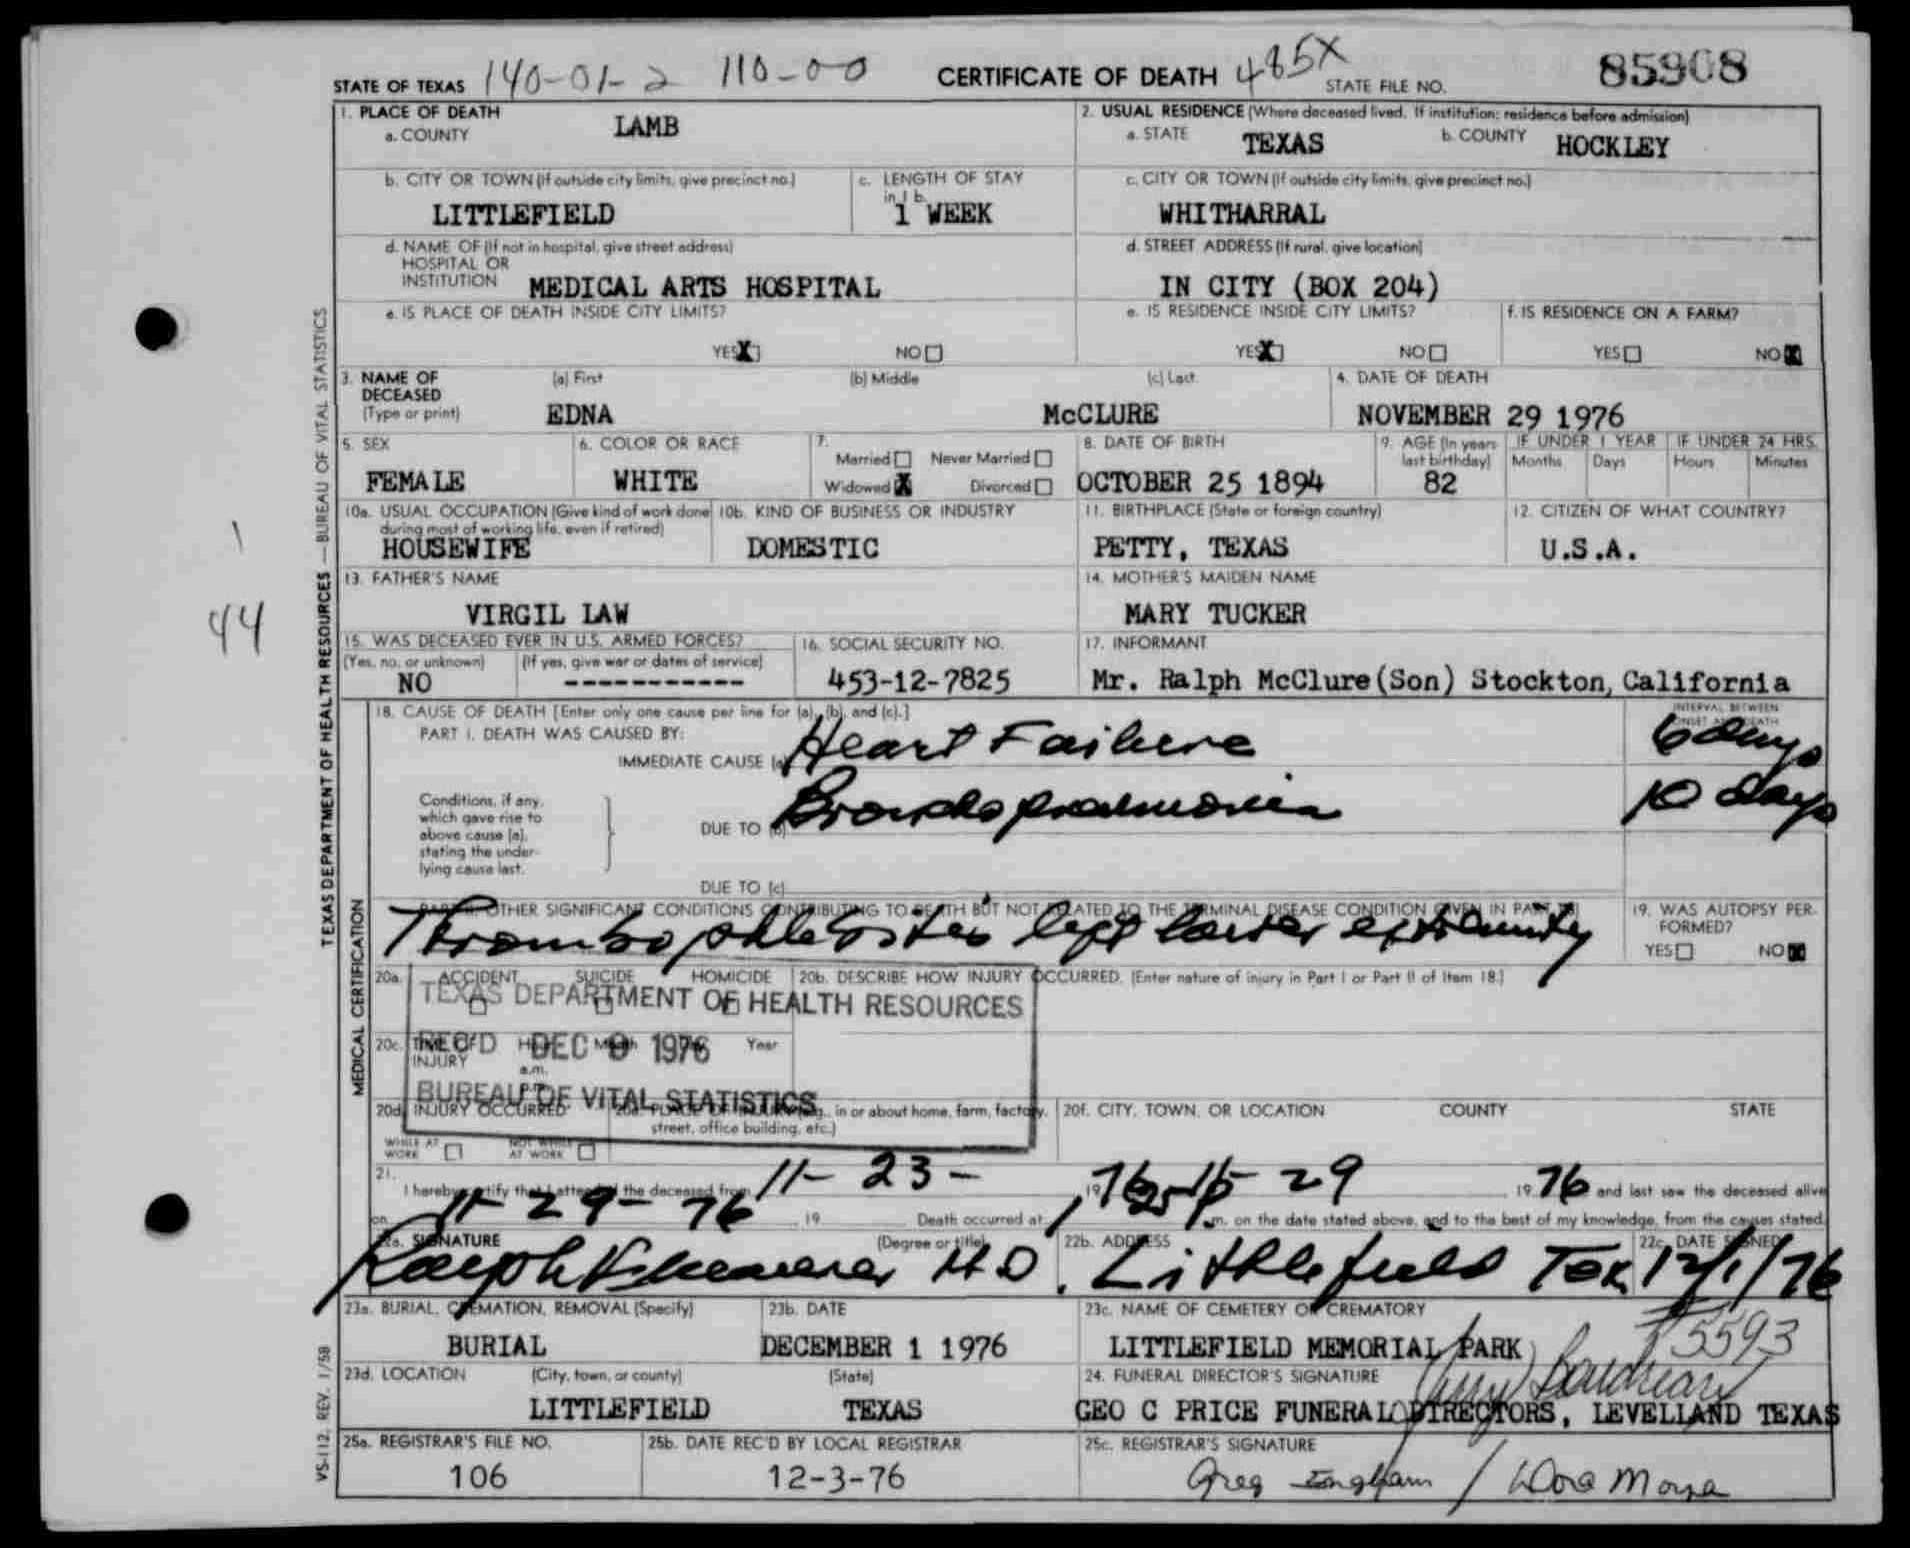 STATE OF TEXAS 140-01-2 110-00 CERTIFICATE OF DEATH 485X STATE FILE NO. 85908
1. PLACE OF DEATH
a. COUNTY LAMB
2. USUAL RESIDENCE (Where deceased lived. If institution: residence before admission)
a. STATE TEXAS b. COUNTY HOCKLEY
b. CITY OR TOWN (If outside city limits, give precinct no.) LITTLEFIELD
c. LENGTH OF STAY in 1 b. 1 WEEK
c. CITY OR TOWN (If outside city limits, give precinct no.) WHITHARRAL
d. NAME OF (If not in hospital, give street address) HOSPITAL OR INSTITUTION MEDICAL ARTS HOSPITAL
d. STREET ADDRESS (If rural, give location) IN CITY (BOX 204)
e. IS PLACE OF DEATH INSIDE CITY LIMITS? YES X NO
e. IS RESIDENCE INSIDE CITY LIMITS? YES X NO
f. IS RESIDENCE ON A FARM? YES NO X
3. NAME OF DECEASED (Type or print) (a) First EDNA (b) Middle (c) Last McCLURE
4. DATE OF DEATH NOVEMBER 29 1976
5. SEX FEMALE
6. COLOR OR RACE WHITE
7. Married Never Married Widowed X Divorced
8. DATE OF BIRTH OCTOBER 25 1894
9. AGE (In years last birthday) 82
IF UNDER 1 YEAR Months Days
IF UNDER 24 HRS. Hours Minutes
10a. USUAL OCCUPATION (Give kind of work done during most of working life, even if retired) HOUSEWIFE
10b. KIND OF BUSINESS OR INDUSTRY DOMESTIC
11. BIRTHPLACE (State or foreign country) PETTY, TEXAS
12. CITIZEN OF WHAT COUNTRY? U.S.A.
13. FATHER'S NAME VIRGIL LAW
14. MOTHER'S MAIDEN NAME MARY TUCKER
15. WAS DECEASED EVER IN U.S. ARMED FORCES? (Yes, no, or unknown) NO (If yes, give war or dates of service) -----------
16. SOCIAL SECURITY NO. 453-12-7825
17. INFORMANT Mr. Ralph McClure(Son) Stockton, California
18. CAUSE OF DEATH [Enter only one cause per line for (a), (b), and (c).]
INTERVAL BETWEEN ONSET AND DEATH
PART I. DEATH WAS CAUSED BY:
IMMEDIATE CAUSE (a) Heart Failure 6 days
Conditions, if any, which gave rise to above cause (a), stating the underlying cause last.
DUE TO (b) Bronchopneumonia 10 days
DUE TO (c)
PART II. OTHER SIGNIFICANT CONDITIONS CONTRIBUTING TO DEATH BUT NOT RELATED TO THE TERMINAL DISEASE CONDITION GIVEN IN PART I(a)
Thrombophlebitis left lower extremity
19. WAS AUTOPSY PERFORMED? YES NO X
20a. ACCIDENT SUICIDE HOMICIDE
20b. DESCRIBE HOW INJURY OCCURRED. (Enter nature of injury in Part I or Part II of Item 18.)
TEXAS DEPARTMENT OF HEALTH RESOURCES
REC'D DEC 9 1976
BUREAU OF VITAL STATISTICS
20c. TIME OF INJURY Hour a.m. p.m. Month Year
20d. INJURY OCCURRED WHILE AT WORK NOT WHILE AT WORK
20e. PLACE OF INJURY (e.g., in or about home, farm, factory, street, office building, etc.)
20f. CITY, TOWN, OR LOCATION COUNTY STATE
21. I hereby certify that I attended the deceased from 11-23- , 1976 11-29 1976 and last saw the deceased alive
on 11-29-76 , 19 Death occurred at m. on the date stated above, and to the best of my knowledge, from the causes stated.
22a. SIGNATURE Ralph M.D. (Degree or title)
22b. ADDRESS Littlefield Tex
22c. DATE SIGNED 12/1/76
23a. BURIAL, CREMATION, REMOVAL (Specify) BURIAL
23b. DATE DECEMBER 1 1976
23c. NAME OF CEMETERY OR CREMATORY LITTLEFIELD MEMORIAL PARK
#5593
23d. LOCATION (City, town, or county) LITTLEFIELD (State) TEXAS
24. FUNERAL DIRECTOR'S SIGNATURE
GEO C PRICE FUNERAL DIRECTORS, LEVELLAND TEXAS
25a. REGISTRAR'S FILE NO. 106
25b. DATE REC'D BY LOCAL REGISTRAR 12-3-76
25c. REGISTRAR'S SIGNATURE Greg Ingham / Dora Moya
TEXAS DEPARTMENT OF HEALTH RESOURCES — BUREAU OF VITAL STATISTICS
MEDICAL CERTIFICATION
VS-112, REV. 1/58
1
44